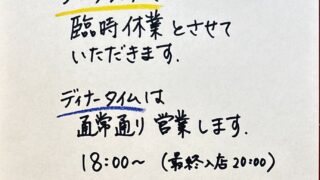 臨時休業とさせて
いただきます.
ディナータイムは
通常通り営業します.
18:00〜 (最終入店 20:00)